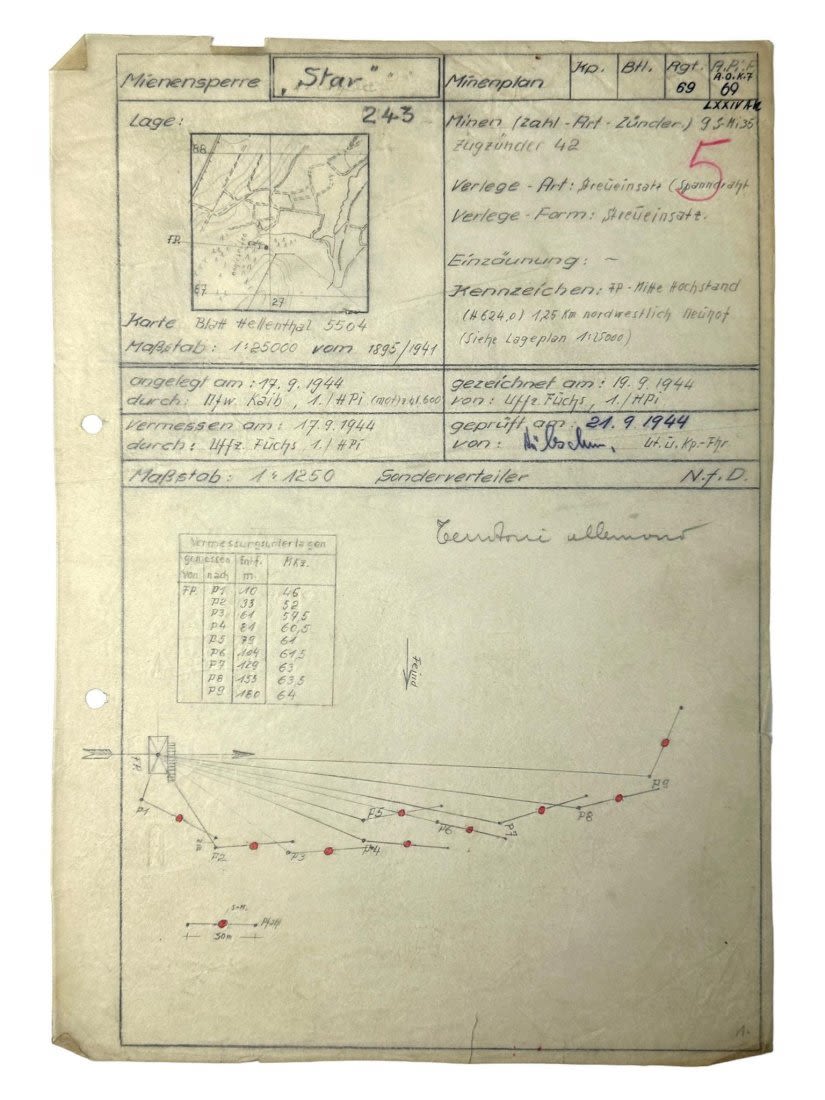 Mienensperre „Star" Minenplan Kp. Btl. Rgt. A.Pi.F.
69 A.O.K.7
69
LXXIV A.K
Lage: 243
Minen (Zahl - Art - Zünder.) 9 S-Mi35
Zugzünder 42
5
Verlege - Art: Streueinsatz (Spanndraht
Verlege - Form: Streueinsatz.
Einzäunung: ~
Kennzeichen: FP - Mitte Hochstand
(H 624,0) 1,25 Km nordwestlich Neuhof
(Siehe Lageplan 1:25000)
68
FP.
67
27
Karte Blatt Hellenthal 5504
Maßstab: 1:25000 vom 1895/1941
angelegt am: 17.9.1944
durch: Nfw. Kaib, 1./HPi (mot) z.b.V. 600
gezeichnet am: 19.9.1944
von: Uffz. Füchs, 1./HPi
vermessen am: 17.9.1944
durch: Uffz. Füchs 1./HPi
geprüft am: 21.9.1944
von: Lt. u. Kp.-Fhr
Maßstab: 1:1250 Sonderverteiler N.f.D.
Territoire allemand
Vermessungsunterlagen
gemessen Entf. MKz.
von nach m
FP. P1 10 46
P2 33 52
P3 61 57,5
P4 81 60,5
P5 79 61
P6 104 61,5
P7 129 63
P8 153 63,5
P9 180 64
Feind
FP.
P1
P2
P3
P4
P5
P6
P7
P8
P9
S-Mi.
Pfahl
50m
1.